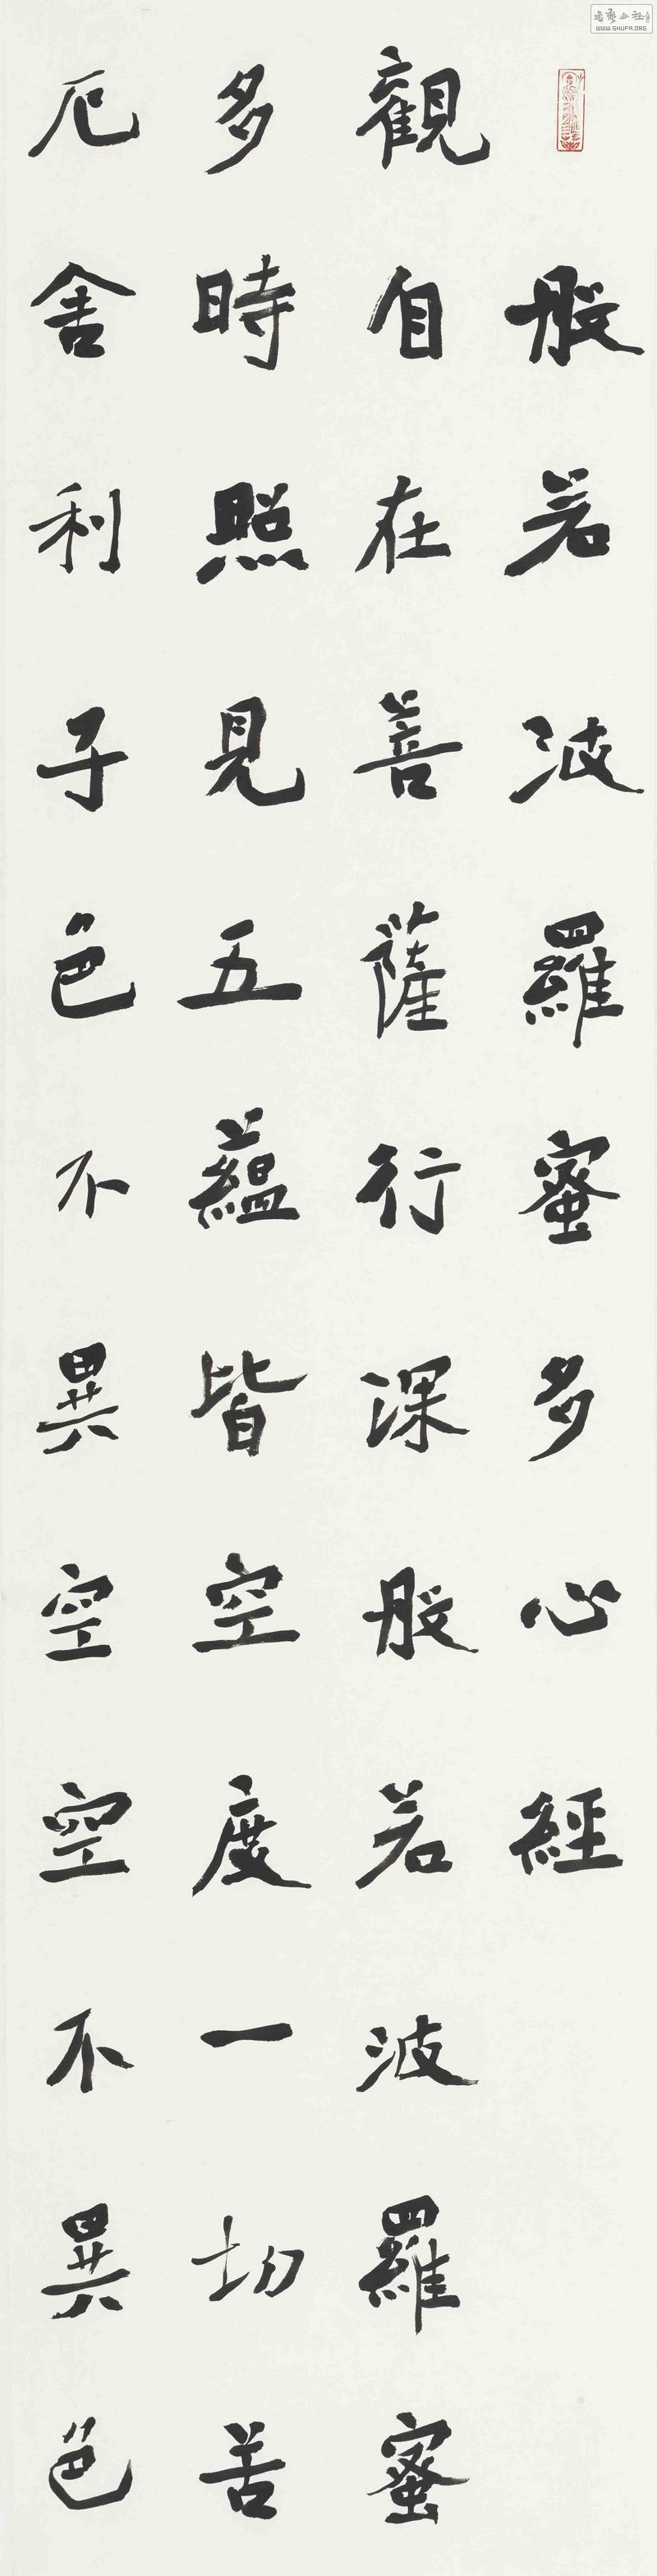 般若波羅蜜多心經
觀自在菩薩行深般若波羅蜜
多時照見五蘊皆空度一切苦
厄舍利子色不異空空不異色
WWW.SHUFA.ORG